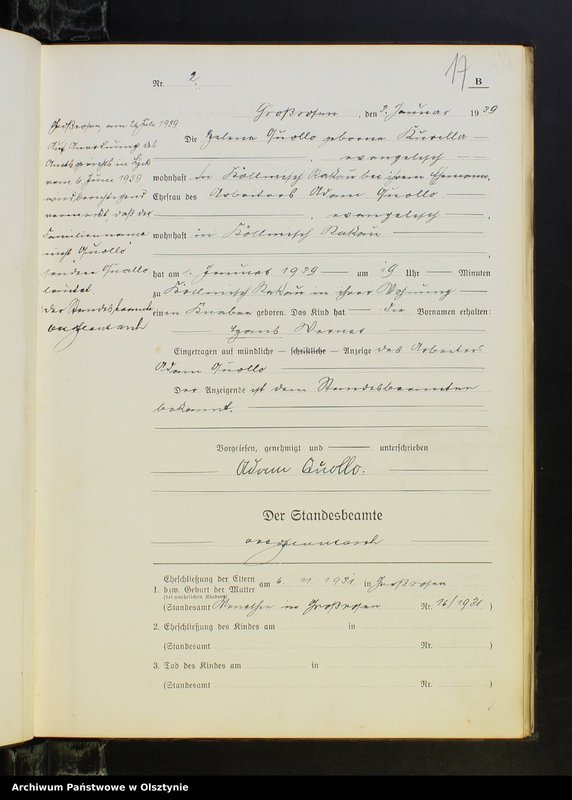 17
B
Nr. 2.
Großrosen, den 3. Januar 1939
Die Helene Quollo geborene Kurella
, evangelisch
wohnhaft in Köllmisch Rakau bei ihrem Ehemann,
Ehefrau des Arbeiters Adam Quollo
, evangelisch ,
wohnhaft in Köllmisch Rakau
,
hat am 1. Januar 1939 um 19 Uhr Minuten
zu Köllmisch Rakau in ihrer Wohnung
einen Knaben geboren. Das Kind hat die Vornamen erhalten:
Hans Werner
Eingetragen auf mündliche – schriftliche – Anzeige des Arbeiters
Adam Quollo
Der Anzeigende ist dem Standesbeamten
bekannt.
Vorgelesen, genehmigt und unterschrieben
Adam Quollo.
Der Standesbeamte
Großrosen, am 24. Juli 1939
Auf Anordnung des
Amtsgerichts in Lyck
vom 6. Juni 1939
wird berichtigend
vermerkt, daß der
Familienname
nicht "Quollo"
sondern Quallo
lautet.
Der Standesbeamte
1. Eheschließung der Eltern am 6. 11. 1931 in Großrosen
bzw. Geburt der Mutter
(bei unehelichen Kindern)
(Standesamt in Großrosen Nr. 16/1931)
2. Eheschließung des Kindes am in
(Standesamt Nr. )
3. Tod des Kindes am in
(Standesamt Nr. )
Archiwum Państwowe w Olsztynie